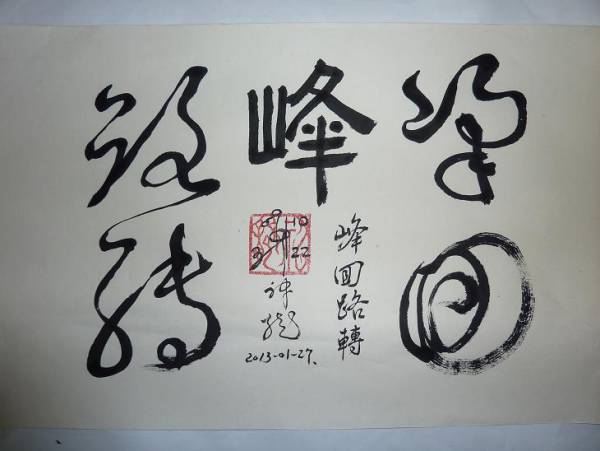 峰回
峰
路轉
峰回路轉
10
22
2013-01-27.